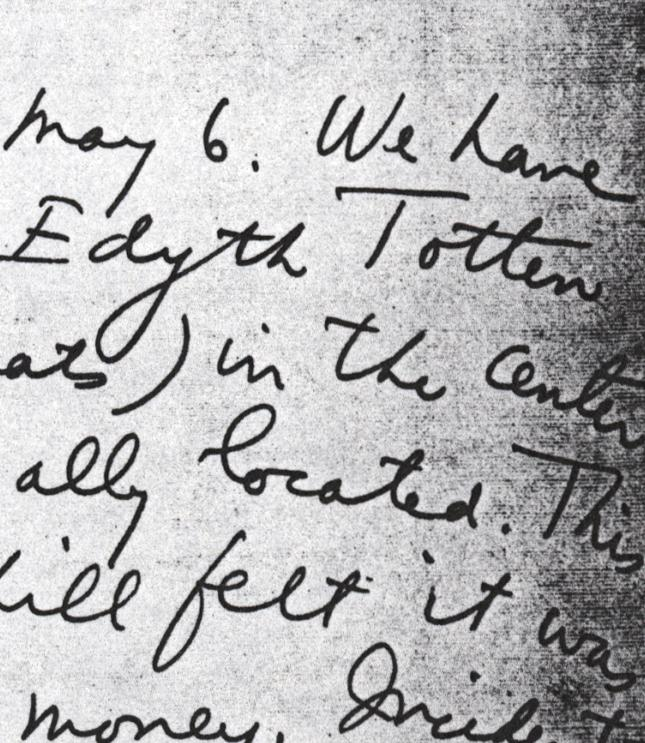 May 6. We have
Edyth Totten
ats) in the center
ally located. This
ill felt it was
money. Incid